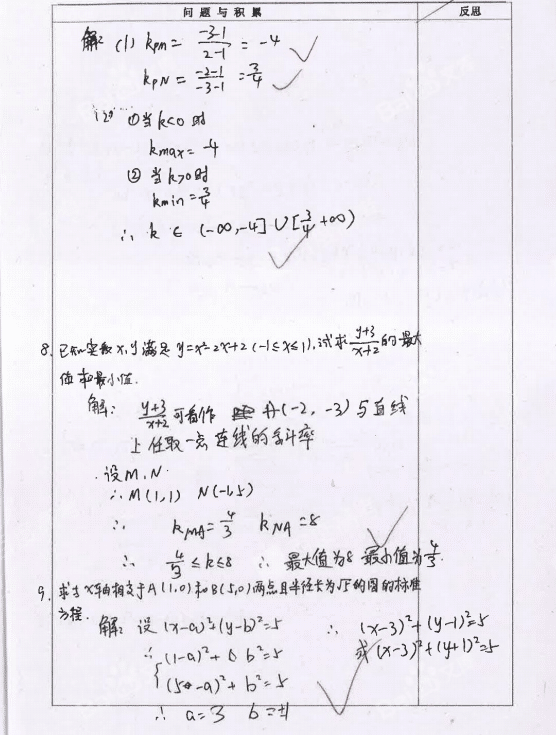 问题与积累 反思
解: (1) kPM = \frac{-3-1}{2-1} = -4
kPN = \frac{-2-1}{-3-1} = \frac{3}{4}
(2) ①当k<0时
kmax = -4
② 当k>0时
kmin = \frac{3}{4}
∴ k ∈ (-∞,-4]∪[\frac{3}{4},+∞)
8. 已知实数x,y满足 y=x²-2x+2 (-1≤x≤1),试求\frac{y+3}{x+2}的最大
值和最小值.
解: \frac{y+3}{x+2}可看作 A(-2,-3)与直线
上任取一点连线的斜率
设M,N.
∴ M(1,1) N(-1,5)
∴ kMA = \frac{4}{3} kNA = 8
∴ \frac{4}{3}≤k≤8 ∴ 最大值为8 最小值为\frac{4}{3}.
9. 求与x轴相交于A(1,0)和B(5,0)两点且半径长为√5的圆的标准
方程.
解: 设(x-a)²+(y-b)²=5 ∴ (x-3)²+(y-1)²=5
∴ (1-a)²+b²=5 或(x-3)²+(y+1)²=5
(5-a)²+b²=5
∴ a=3 b=±1